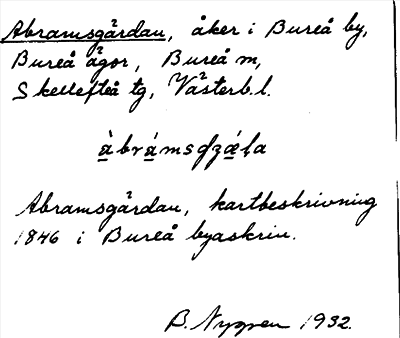 Abramsgärdan, åker i Bureå by,
Bureå ägor, Bureå m,
Skellefteå tg, Västerb. l.
Abramsgärdan, kartbeskrivning
1846 i Bureå byaskrin.
B. Nygren 1932.